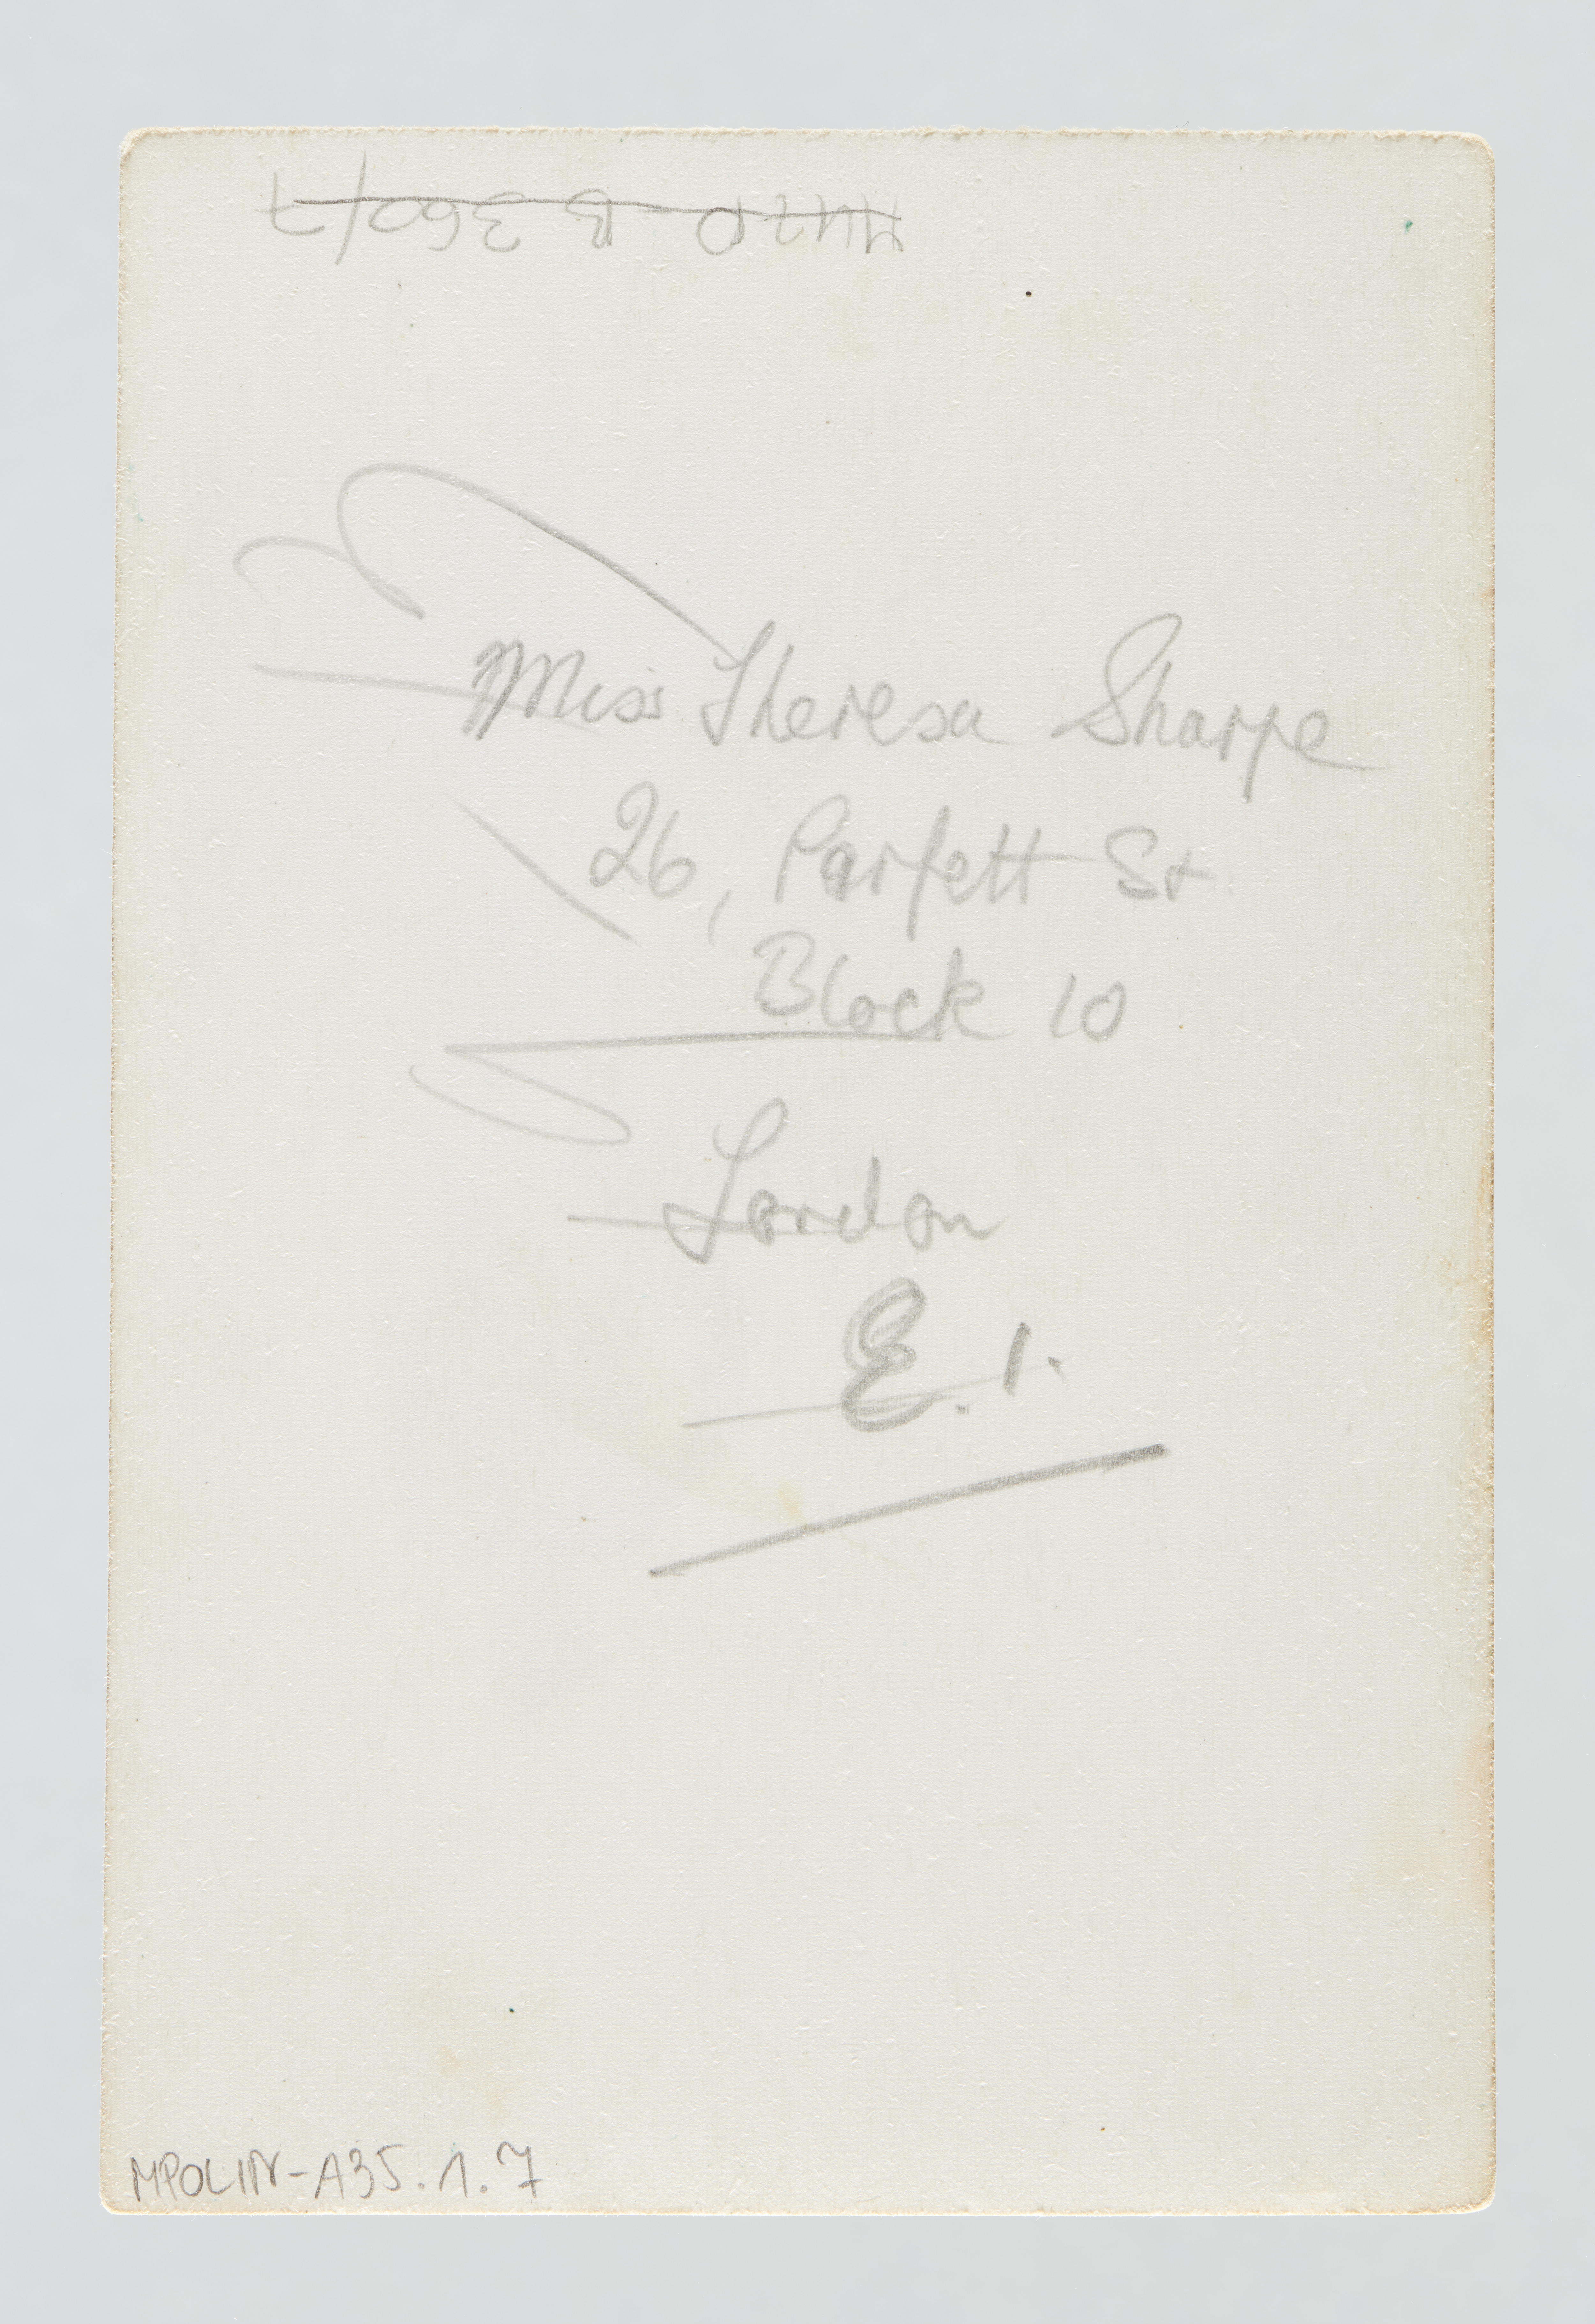 Miss Theresa Sharpe
26, Parfett St
Block 10
London
E. 1.
MPOLIN-A35.1.7